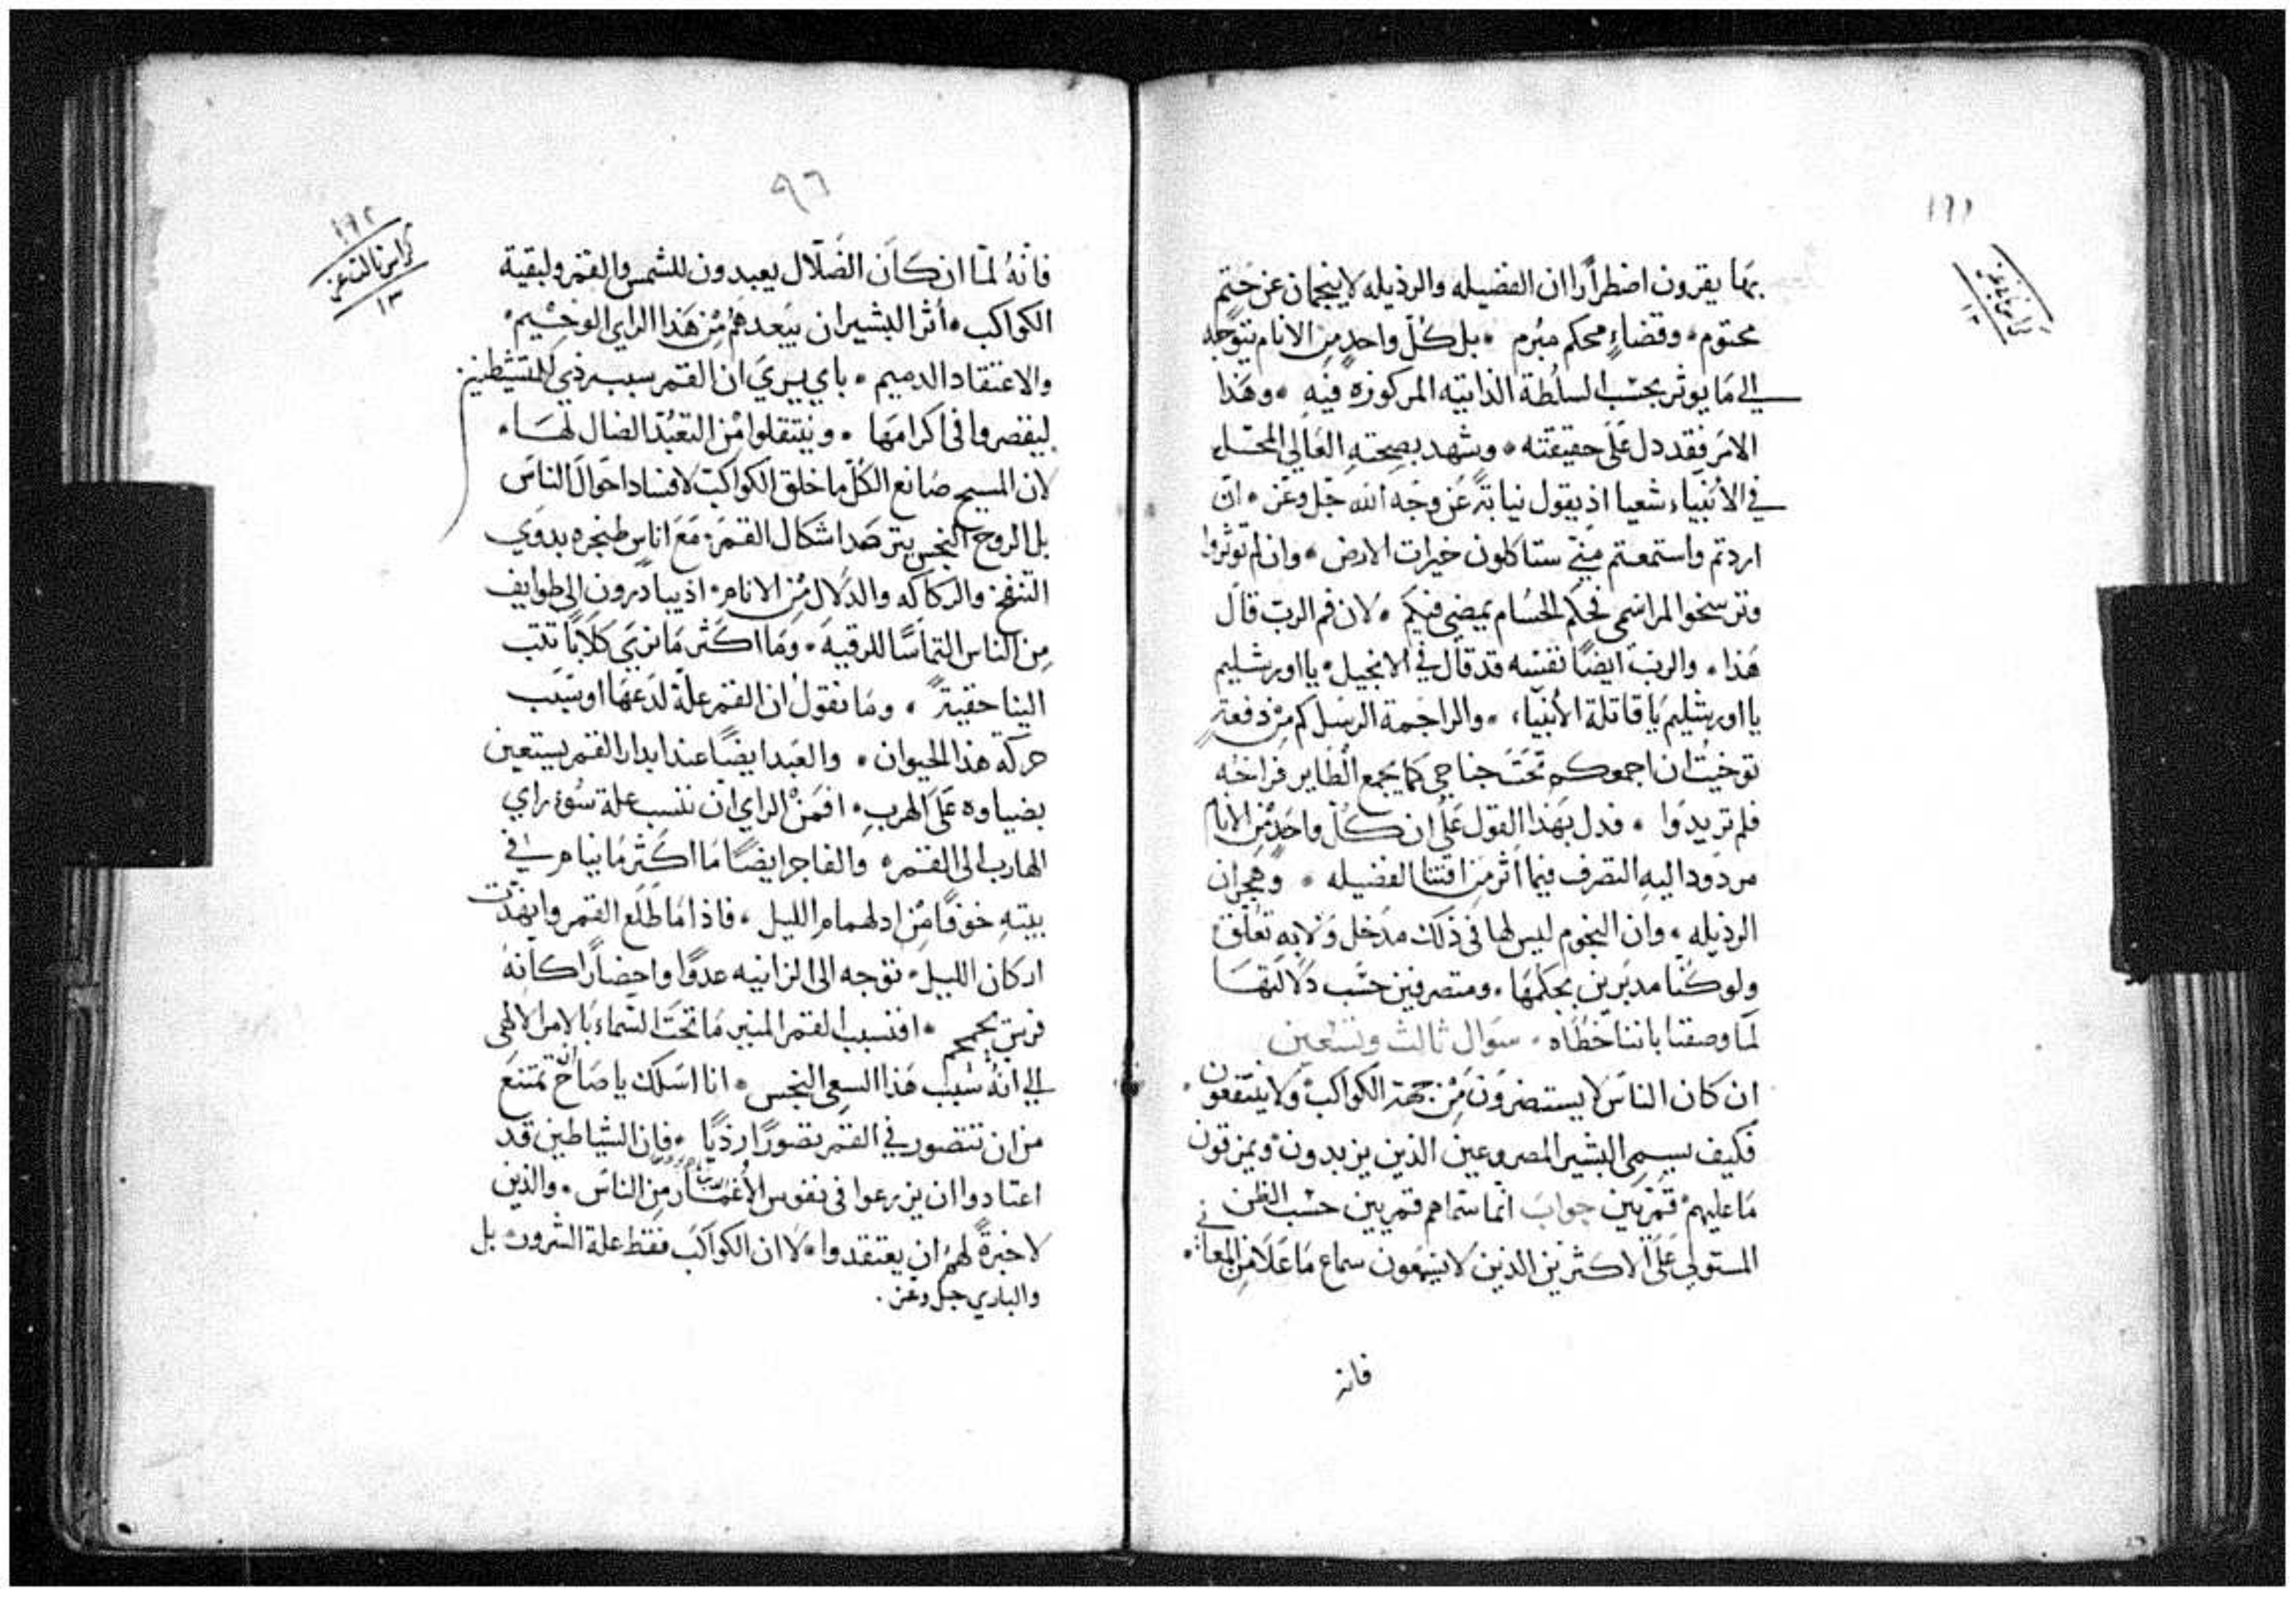 ١٩١
بها يقرون اضطرارا ان الفضيله والرذيله لا ينجمان عن حتم
محتوم. وقضاءٍ محكم مبرم. بل كلّ واحدٍ من الانام يتوجه
الى ما يوثر بحسب السلطة الذاتيه المركوزه فيه. وهذا
الامر فقد دل على حقيقته. وشهد بصحته العالي المحل
في الأنبياء شعيا اذ يقول نيابةً عن وجه الله جل وعز. ان
اردتم واستمعتم مني ستاكلون خيرات الارض. وان لم توثروا
وترسخوا لمراسمي فحكم الحسام يمضي فيكم. لان فم الرب قال
هذا. والرب ايضًا نفسه قد قال في الانجيل. يا اورشليم
يا اورشليم يا قاتلة الأنبياء. والراجمة الرسل كم من دفعةٍ
توخيت ان اجمعكم تحت جناحي كما يجمع الطاير فراخه
فلم تريدوا. فدل بهذا القول على ان كلّ واحدٍ من الانام
مردود اليه التصرف فيما اثر من اقتنا الفضيله. وهجران
الرذيله. وان النجوم ليس لها في ذلك مدخل ولا به تعلق
ولو كنا مدبرين بحكمها. ومتصرفين حسب دلالتها
لما وصفنا باننا خطاه. سوال ثالث وتسعين
ان كان الناس لا يستضرون من جهة الكواكب ولا ينتفعون.
فكيف يسمي البشير المصروعين الذين يزبدون ويمزقون
ما عليهم قمريين جواب انما سماهم قمريين حسب الظن
المستولي على الاكثرين الذين لا يسمعون سماع ما علا من المعاني.
فانه
٩٦
١٩٢
كراس ثالث عشر
١٣
فانهُ لما ان كان الضلال يعبدون للشمس والقمر ولبقية
الكواكب. أثر البشير ان يبعدهم من هذا الراي الوخيم.
والاعتقاد الدميم. باي يري ان القمر سبب ردي للتشيطن
ليقصروا في اكرامها. وينتقلوا من التعبد الضال لها.
لان المسيح صانع الكل ما خلق الكواكب لافساد احوال الناس
بل الروح النجس يترصد اشكال القمر. مع اناس طنجره بدوي
التنفخ والركاكه والدلال من الانام. اذ يبادرون الى طوايف
من الناس التماسًا للرقيه. وما اكثر ما نري كلابًا تثب
الينا خفيةً. وما نقول ان القمر علة لدعها او سبب
حركة هذا الحيوان. والعبد ايضًا عند ابدار القمر يستعين
بضياوه على الهرب. افمن الراي ان ننسب علة سوء راي
الهارب الى القمر. والفاجر ايضًا ما اكثر ما ينام في
بيته خوفًا من ادلهمام الليل. فاذا ما طلع القمر وانهدت
اركان الليل. توجه الى الزانيه عدوًا واحضارًا كانه
فرس يحمحم. افنسبب القمر المنير ما تحت السماء بالامر الالهي
الى انهُ سبب هذا السعي النجس. انا اسلك يا صاح ان تمتنع
من ان تتصور في القمر تصورًا رديًا. فان الشياطين قد
اعتادوا ان يزرعوا في نفوس الأغمار من الناس. والذين
لا خبرةً لهم ان يعتقدوا. لا ان الكواكب فقط علة الشرور بل
والباري جل وعز.